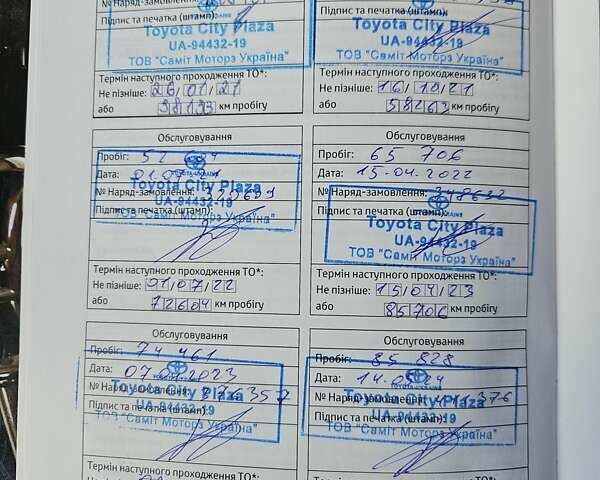 № Наряд-замовлення:
Підпис та печатка (штамп):
Toyota City Plaza
UA-94432-19
ТОВ "Саміт Моторз Україна"
Термін наступного проходження ТО*:
Не пізніше: 26/01/21
або 38133 км пробігу
Підпис та печатка (штамп):
Toyota City Plaza
UA-94432-19
ТОВ "Саміт Моторз Україна"
Термін наступного проходження ТО*:
Не пізніше: 16/10/21
або 58263 км пробігу
Обслуговування
Пробіг: 52
Дата: 01.07
TOYOTA-UKRAINE
Toyota City Plaza
№ Наряд-замовлення:
UA-94432-19
Підпис та печатка (штамп):
ТОВ "Саміт Моторз Україна"
Термін наступного проходження ТО*:
Не пізніше: 01/07/22
або 72604 км пробігу
Обслуговування
Пробіг: 65 706
Дата: 15.04.2022
№ Наряд-замовлення: 348632
Підпис та печатка (штамп):
Toyota City Plaza
UA-94432-19
ТОВ "Саміт Моторз Україна"
Термін наступного проходження ТО*:
Не пізніше: 15/04/23
або 85706 км пробігу
Обслуговування
Пробіг: 74 461
Дата:
Toyota City Plaza
№ Наряд-замовлення:
UA-94432-19
Підпис та печатка (штамп):
ТОВ "Саміт Моторз Україна"
Термін наступного проходження ТО*:
Не пізніше:
Обслуговування
Пробіг: 85 828
Дата:
Toyota City Plaza
№ Наряд-замовлення:
UA-94432-19
Підпис та печатка (штамп):
ТОВ "Саміт Моторз Україна"
Термін наступного проходження ТО*: